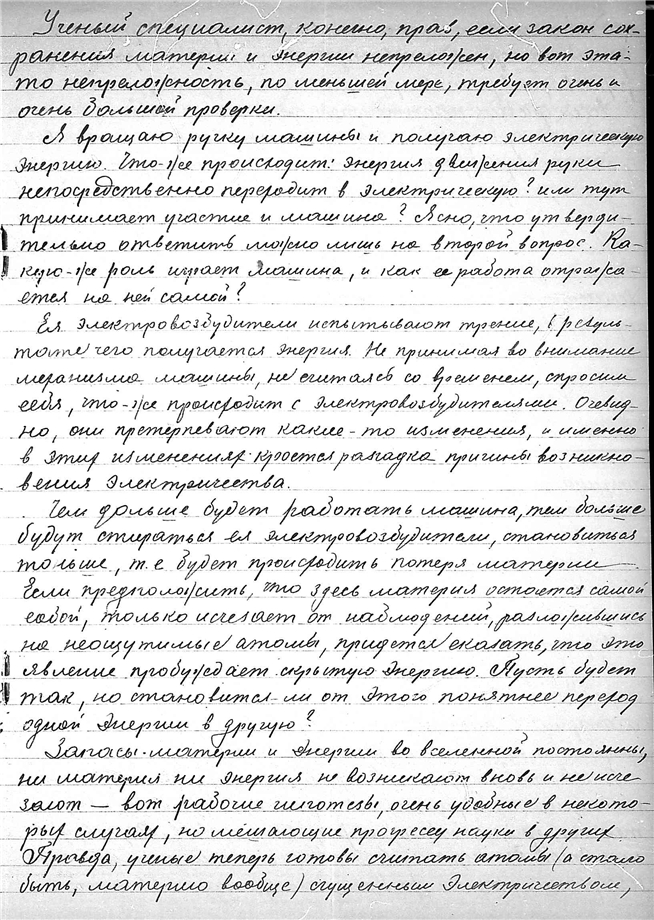 Ученый специалист, конечно, прав, если закон сох-
ранения материи и энергии непреложен, но вот эта-
то непреложность, по меньшей мере, требует очень и
очень большой проверки.
Я вращаю ручку машины и получаю электрическую
энергию. Что-же происходит: энергия движения руки
непосредственно переходит в электрическую? или тут
принимает участие и машина? Ясно, что утверди-
тельно ответить можно лишь на второй вопрос. Ка-
кую-же роль играет машина, и как ее работа отража-
ется на ней самой?
Ея электровозбудители испытывают трение, в резуль-
тате чего получается энергия. Не принимая во внимание
механизма машины, не считаясь со временем, спросим
себя, что-же происходит с электровозбудителями. Очевид-
но, они претерпевают какие-то изменения, и именно
в этих изменениях кроется разгадка причины возникно-
вения электричества.
Чем дольше будет работать машина, тем больше
будут стираться ея электровозбудители, становиться
тоньше, т.е будет происходить потеря материи.
Если предположить, что здесь материя остается самой
собой, только исчезает от наблюдений, разложившись
на неощутимые атомы, придется сказать, что это
явление пробуждает скрытую энергию. Пусть будет
так, но становится-ли от этого понятнее переход
одной энергии в другую?
Запасы материи и энергии во вселенной постоянны,
ни материя ни энергия не возникают вновь и не исче
зают — вот рабочие гипотезы, очень удобные в некото-
рых случаях, но мешающие прогрессу науки в других.
Правда, ученые теперь готовы считать атомы (а стало
быть, материю вообще) сгущенным электричеством,